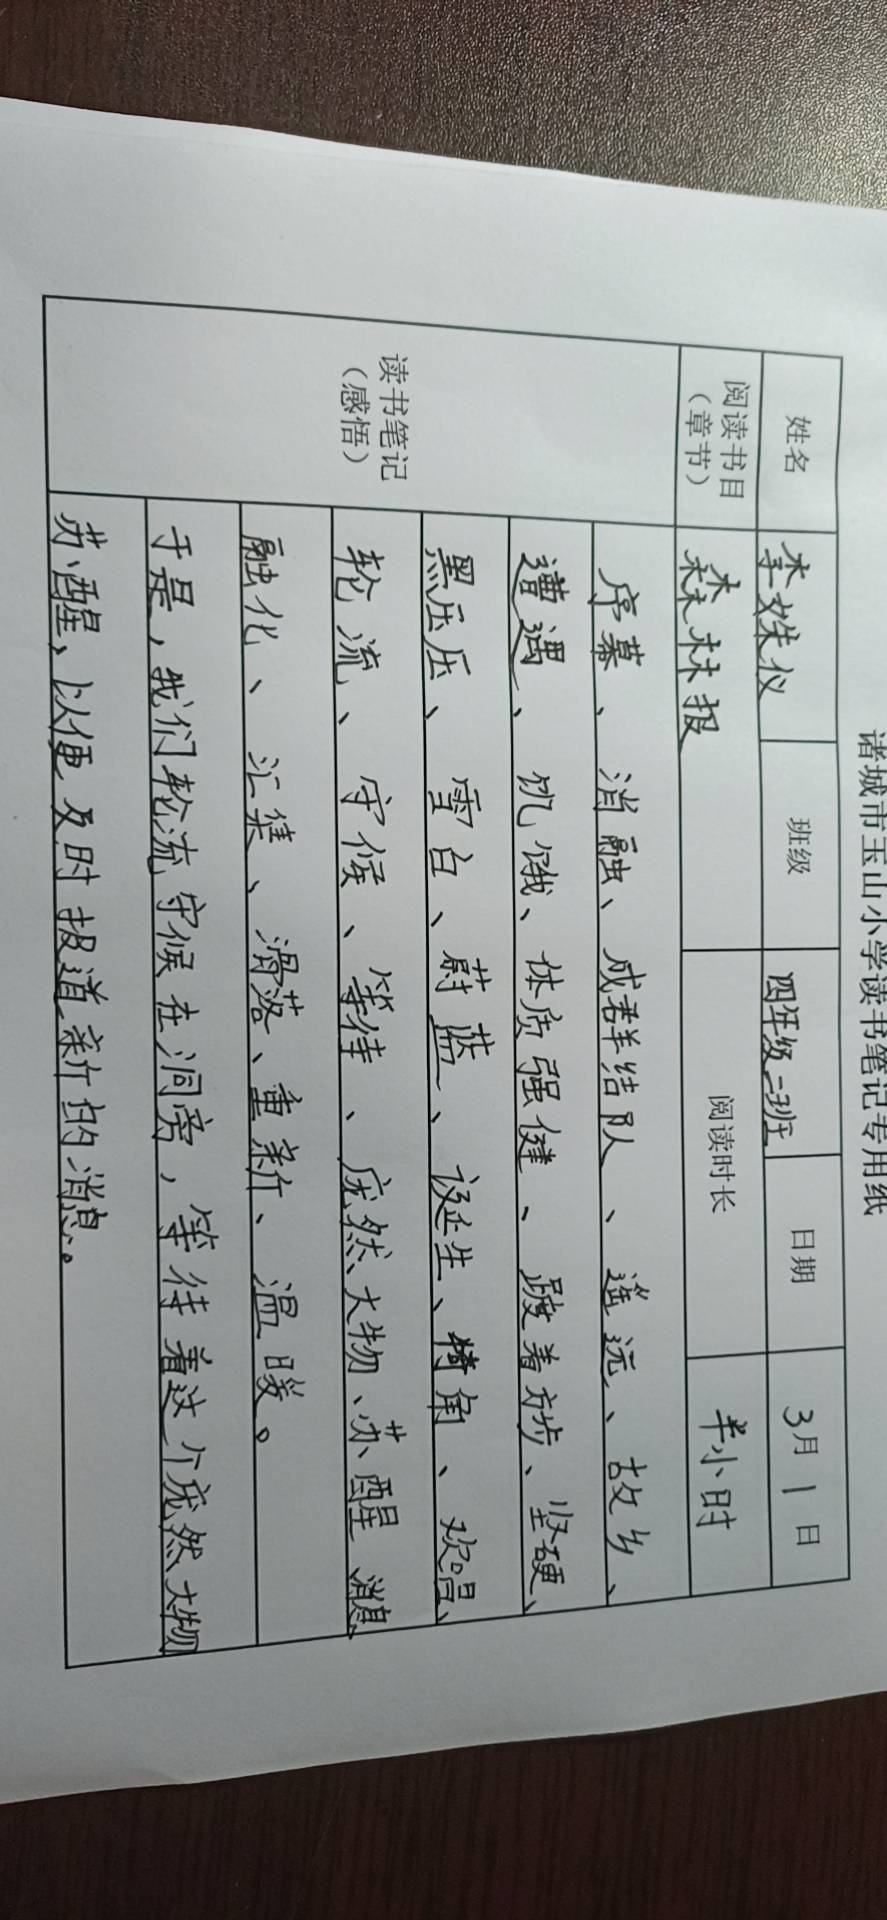 诸城市玉山小学读书笔记专用纸
姓名 李姝仪 班级 四年级二班 日期 3月1日
阅读书目（章节） 森林报 阅读时长 半小时
读书笔记（感悟）
序幕、消融、成群结队、遥远、故乡、
遭遇、饥饿、体质强健、踱着方步、坚硬、
黑压压、雪白、蔚蓝、诞生、犄角、欢唱、
轮流、守候、等待、庞然大物、苏醒、消息、
融化、汇集、滑落、重新、温暖。
于是，我们轮流守候在洞旁，等待着这个庞然大物
苏醒，以便及时报道新的消息。